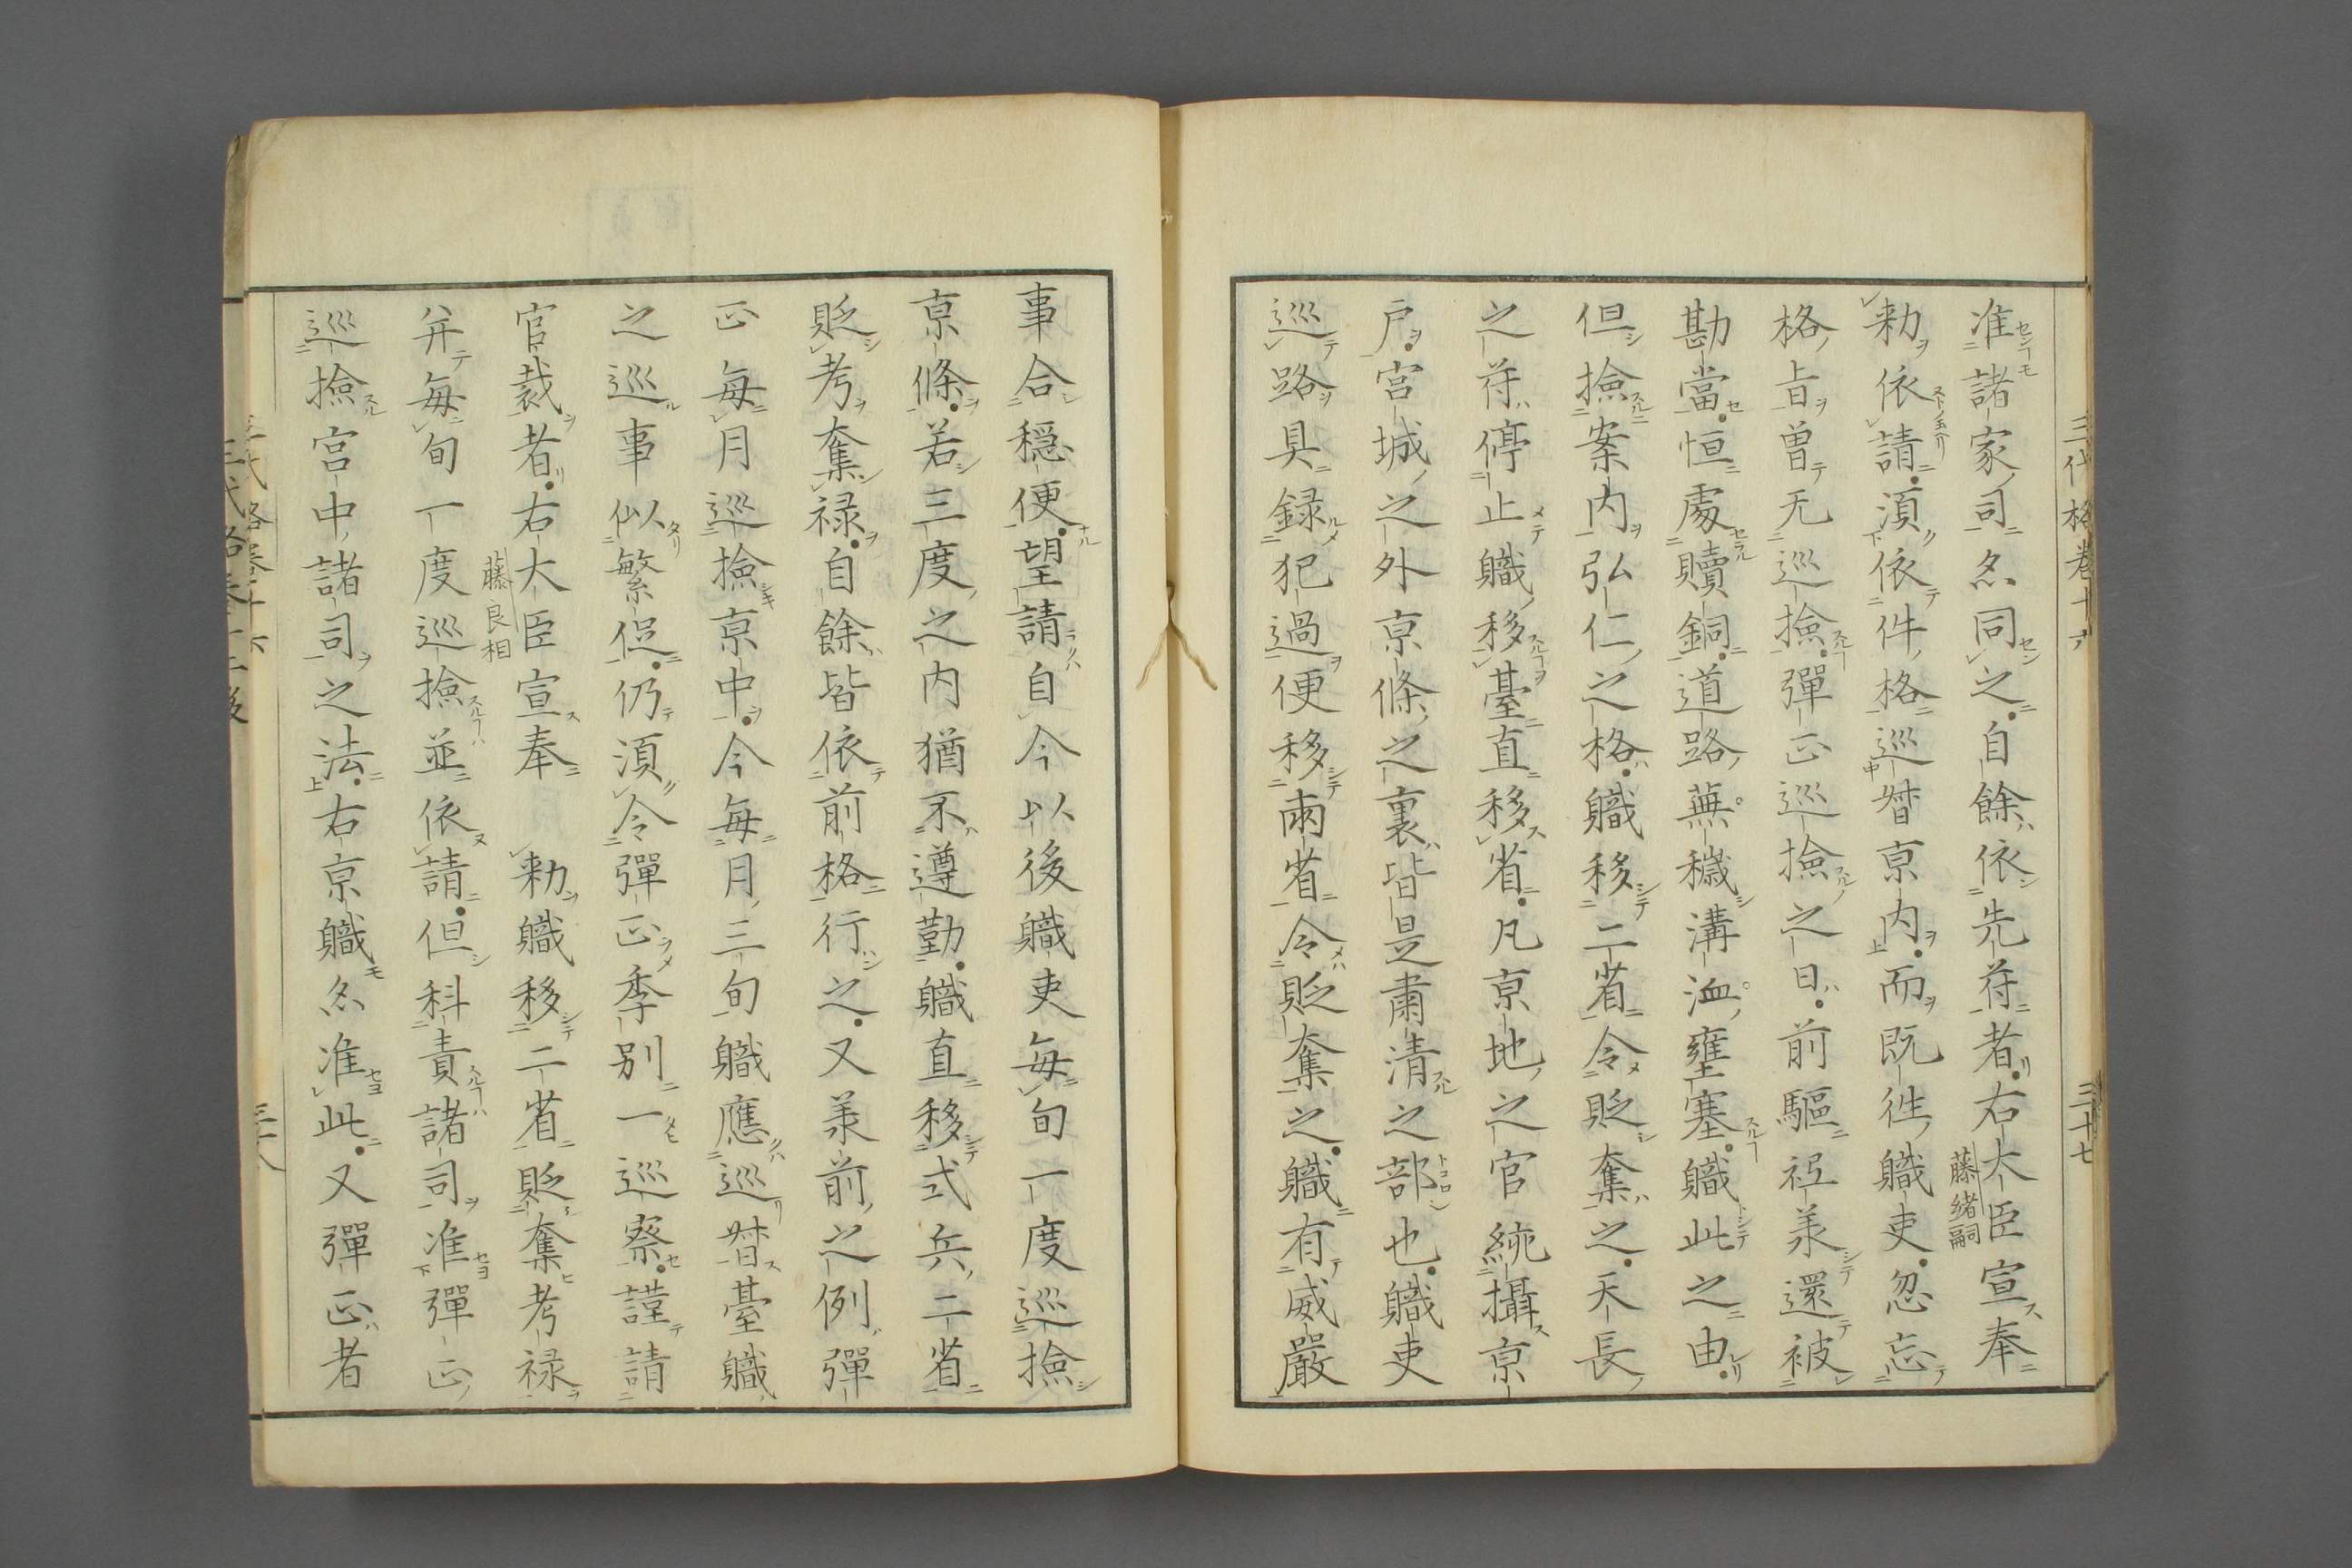 三代格卷十六
三十七
准諸家司亦同之自餘依先符者右大臣宣奉
藤緒嗣
勅依請須依件格巡督京内而既徃職吏忽忘
格旨曽无巡撿彈正巡撿之日前驅祗羕還被
勘當恒處贖銅道路蕪穢溝洫壅塞職此之由
但撿案内弘仁之格職移二省令貶奪之天長
之符停止職移臺直移省凡京地之官統攝京
戸宮城之外京條之裏皆是肅清之部也職吏
巡路具録犯過便移兩省令貶奪之職有威嚴
事合穏便望請自今以後職吏毎旬一度巡撿
京條若三度之内猶不遵勤職直移式兵二省
貶考奪禄自餘皆依前格行之又羕前之例彈
正毎月巡撿京中今毎月三旬職應巡督臺職
之巡事似繁促仍須令彈正季別一巡察謹請
官裁者右大臣宣奉　勅職移二省貶奪考禄
藤良相
并毎旬一度巡撿並依請但科責諸司准彈正
巡撿宮中諸司之法右京職亦准此又彈正者